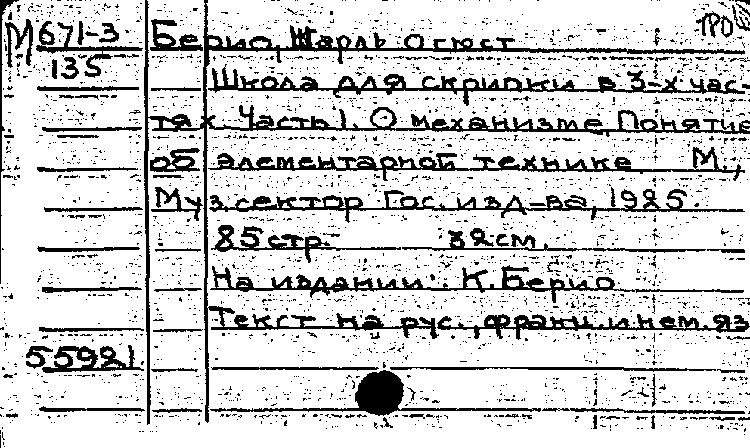 М 671-3 Берио, Шарль Огюст ТРО
135
Школа для скрипки в 3-х час-
тях Часть 1. О механизме. Понятие
об элементарной технике М.,
Муз. сектор Гос. изд-ва, 1925.
85 стр. 32 см.
На издании: К. Берио
Текст на рус., франц. и нем. яз
55921